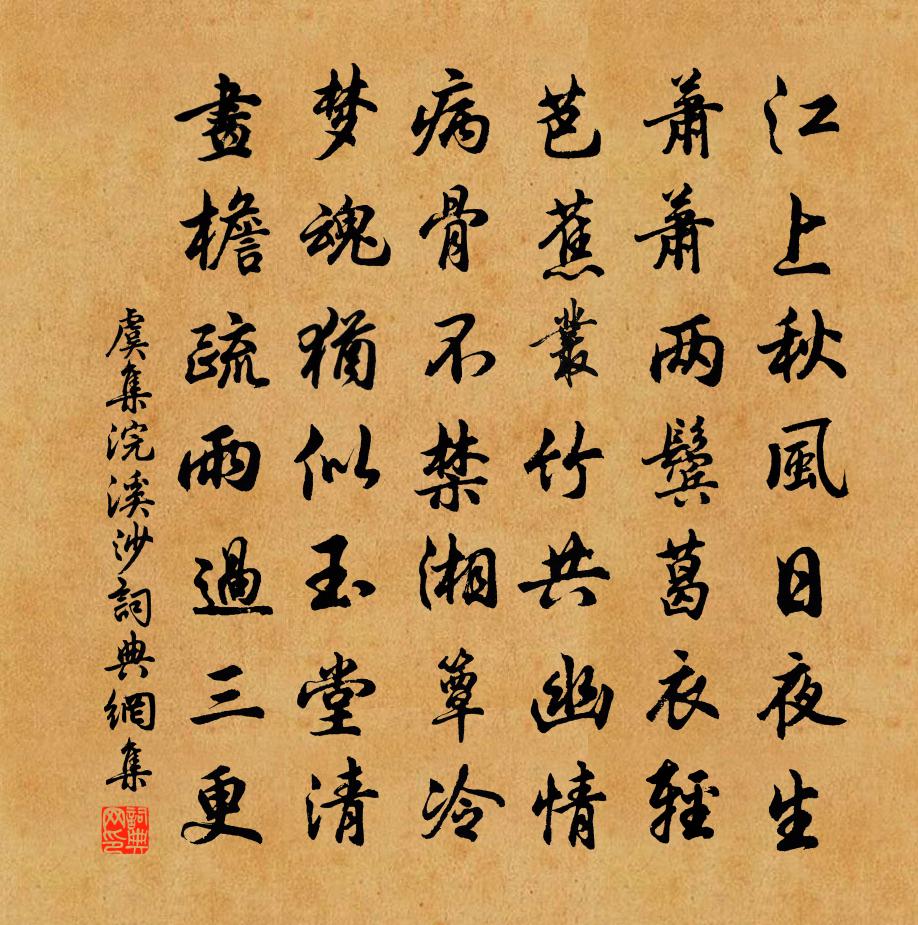 江上秋風日夜生
萧萧两鬓葛衣輕
芭蕉叢竹共幽情
病骨不禁湘簟冷
梦魂犹似玉堂清
畫檐疏雨過三更
虞集浣溪沙詞典網集
詞典网印